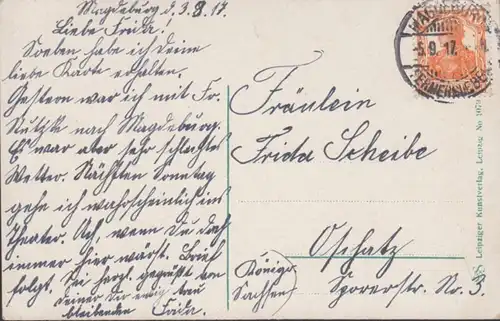 Magdeburg d. 3.9.17.
Liebe Frida!
Soeben habe ich Deine
liebe Karte erhalten.
Gestern war ich mit Fr.
nach Magdeburg.
Es war aber sehr schlechtes
Wetter. Nächsten Sonntag
gehe ich wahrscheinlich ins
Theater. Ach, wenn Du doch
immer hier wärst. Brief
folgt. Sei herzl. gegrüßt von
Deiner Dir ewig treu
bleibenden Frida.
MAGDEBURG
5.9.17.
Fräulein
Frida Scheibe
Oschatz
(Königr.
Sachsen)
Sporerstr. No. 3.
Leipziger Kunstverlag, Leipzig No